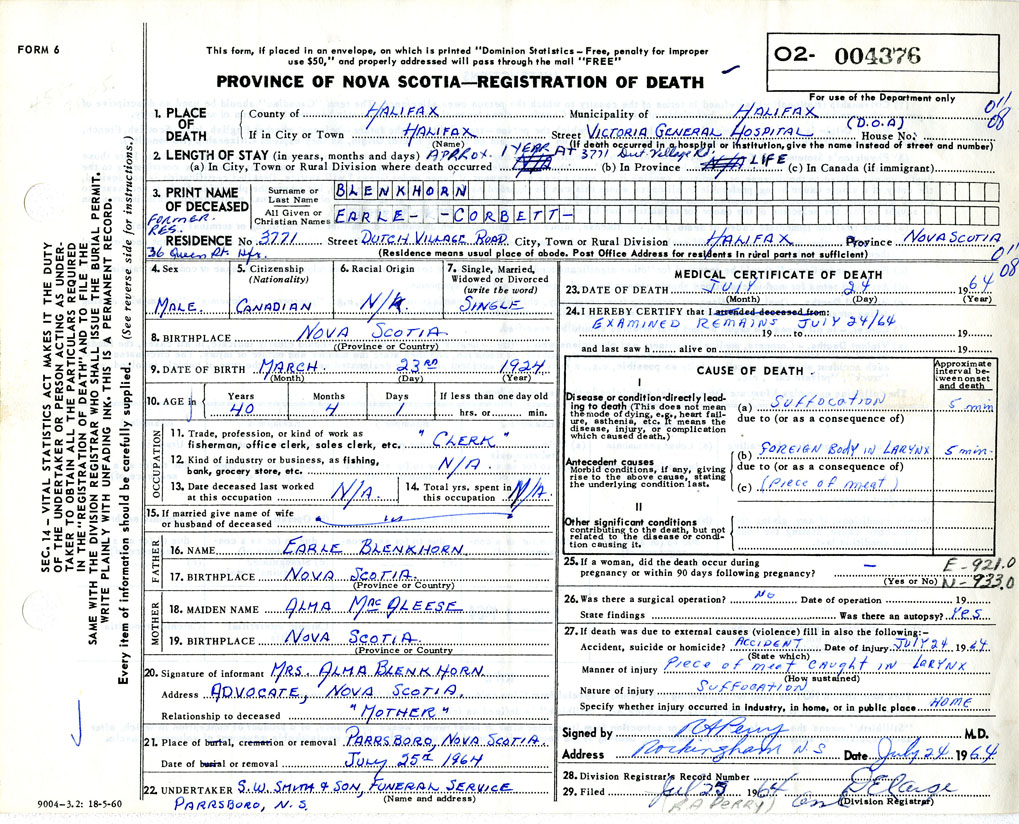 FORM 6
This form, if placed in an envelope, on which is printed "Dominion Statistics – Free, penalty for improper
use $50," and properly addressed will pass through the mail "FREE"
PROVINCE OF NOVA SCOTIA—REGISTRATION OF DEATH
O2- 004376
For use of the Department only
011
08
1. PLACE OF DEATH
County of HALIFAX Municipality of HALIFAX
(D.O.A)
If in City or Town HALIFAX Street VICTORIA GENERAL HOSPITAL House No.
(Name) (If death occurred in a hospital or institution, give the name instead of street and number)
2. LENGTH OF STAY (in years, months and days) APPROX. 1 YEAR AT 3771 Dut. Village Rd.
(a) In City, Town or Rural Division where death occurred N/A (b) In Province N/A LIFE (c) In Canada (if immigrant)
3. PRINT NAME OF DECEASED
Surname or Last Name BLENKHORN
All Given or Christian Names EARLE- -CORBETT-
FORMER.
RES.
36 Queen St. Hfx.
RESIDENCE No 3771 Street DUTCH VILLAGE ROAD City, Town or Rural Division HALIFAX Province NOVA SCOTIA
(Residence means usual place of abode. Post Office Address for residents in rural parts not sufficient)
011
08
4. Sex
MALE.
5. Citizenship
(Nationality)
CANADIAN
6. Racial Origin
N/A
7. Single, Married,
Widowed or Divorced
(write the word)
SINGLE
8. BIRTHPLACE NOVA SCOTIA.
(Province or Country)
9. DATE OF BIRTH MARCH. 23RD 1924
(Month) (Day) (Year)
10. AGE in
Years Months Days If less than one day old
40 4 1 hrs. or min.
OCCUPATION
11. Trade, profession, or kind of work as
fisherman, office clerk, sales clerk, etc. "CLERK"
12. Kind of industry or business, as fishing,
bank, grocery store, etc. N/A.
13. Date deceased last worked
at this occupation N/A.
14. Total yrs. spent in
this occupation N/A.
15. If married give name of wife
or husband of deceased
FATHER
16. NAME EARLE BLENKHORN.
17. BIRTHPLACE NOVA SCOTIA.
(Province or Country)
MOTHER
18. MAIDEN NAME ALMA MACALEESE
19. BIRTHPLACE NOVA SCOTIA.
(Province or Country
20. Signature of informant MRS. ALMA BLENKHORN.
Address ADVOCATE, NOVA SCOTIA.
Relationship to deceased "MOTHER"
21. Place of burial, cremation or removal PARRSBORO, NOVA SCOTIA.
Date of burial or removal JULY 25th 1964
22. UNDERTAKER S.W. SMITH & SON, FUNERAL SERVICE
(Name and address)
PARRSBORO, N.S.
9004–3.2: 18-5-60
MEDICAL CERTIFICATE OF DEATH
23. DATE OF DEATH JULY 24 1964
(Month) (Day) (Year)
24. I HEREBY CERTIFY that I attended deceased from:
EXAMINED REMAINS JULY 24/64
19 to 19
and last saw h alive on 19
CAUSE OF DEATH.
Approximate
interval be-
tween onset
and death
I
Disease or condition directly lead-
ing to death (This does not mean
the mode of dying, e.g., heart fail-
ure, asthenia, etc. It means the
disease, injury, or complication
which caused death.)
(a) SUFFOCATION 5 min
due to (or as a consequence of)
Antecedent causes
Morbid conditions, if any, giving
rise to the above cause, stating
the underlying condition last.
(b) FOREIGN BODY IN LARYNX 5 min.
due to (or as a consequence of)
(c) (Piece of meat)
II
Other significant conditions
contributing to the death, but not
related to the disease or condi-
tion causing it.
25. If a woman, did the death occur during
pregnancy or within 90 days following pregnancy? –
(Yes or No)
E-921.0
N-933.0
26. Was there a surgical operation? NO Date of operation 19
State findings Was there an autopsy? YES
27. If death was due to external causes (violence) fill in also the following:–
Accident, suicide or homicide? ACCIDENT Date of injury JULY 24 1964
(State which)
Manner of injury Piece of meat CAUGHT IN LARYNX
(How sustained)
Nature of injury SUFFOCATION
Specify whether injury occurred in industry, in home, or in public place HOME
Signed by RAPerry M.D.
Address Rockingham N.S Date July 24 1964
28. Division Registrar's Record Number
29. Filed July 25 1964
(R A PERRY) (Division Registrar)
SEC. 14 – VITAL STATISTICS ACT MAKES IT THE DUTY
OF THE UNDERTAKER OR PERSON ACTING AS UNDER-
TAKER TO OBTAIN ALL THE PARTICULARS REQUIRED
IN THE "REGISTRATION OF DEATH" AND TO FILE THE
SAME WITH THE DIVISION REGISTRAR WHO SHALL ISSUE THE BURIAL PERMIT.
WRITE PLAINLY WITH UNFADING INK. THIS IS A PERMANENT RECORD.
Every item of information should be carefully supplied. (See reverse side for instructions.)